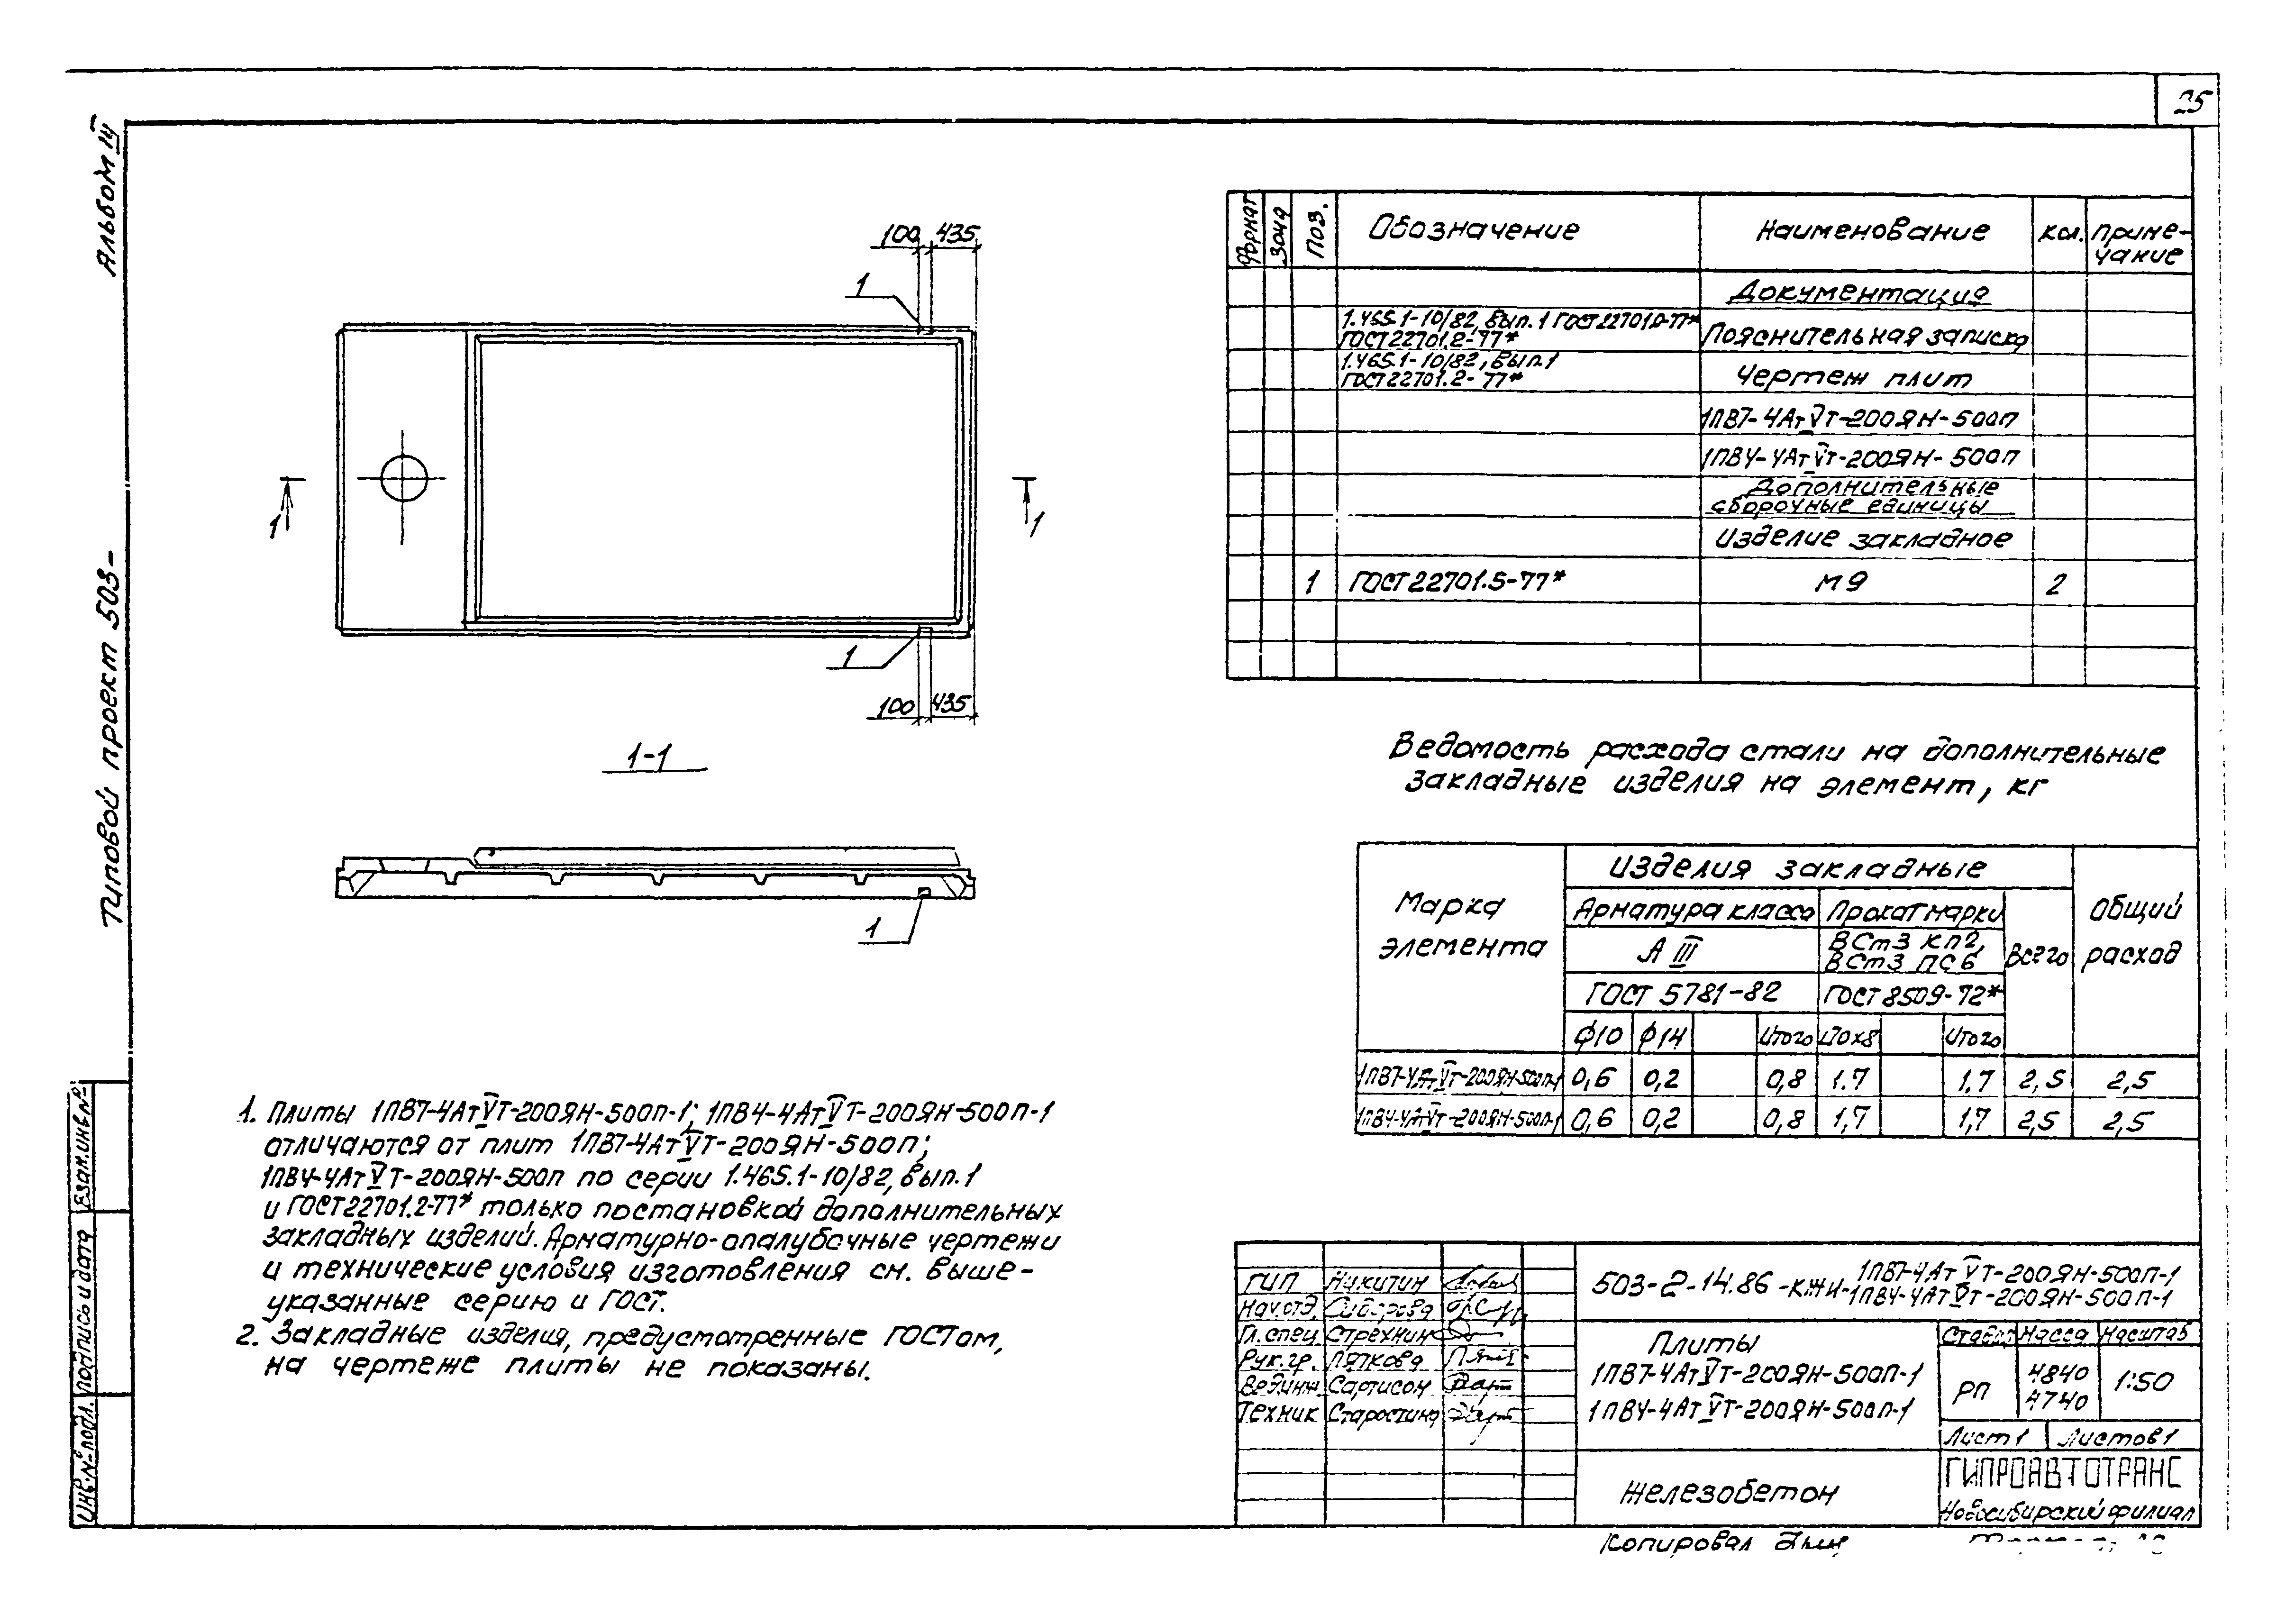 25
Альбом IV
Типовой проект 503-
100 435
1
1
1
1
100 435
1-1
1
Формат Зона Поз. Обозначение Наименование Кол. Приме-
чание
Документация
1.465.1-10/82, вып.1 ГОСТ22701.0-77*
ГОСТ22701.2-77* Пояснительная записка
1.465.1-10/82, вып.1
ГОСТ22701.2-77* Чертеж плит
1ПВ7-4АтVТ-200ЯН-500П
1ПВ4-4АтVТ-200ЯН-500П
Дополнительные
сборочные единицы
Изделие закладное
1 ГОСТ22701.5-77* М9 2
Ведомость расхода стали на дополнительные
закладные изделия на элемент, кг
Марка
элемента
Изделия закладные
Общий
расход
Арматура класса Прокат марки
А III
ВСт3 кп2,
ВСт3 пс6
Всего
ГОСТ 5781-82 ГОСТ 8509-72*
ф10 ф14 Итого Итого
1ПВ7-4АтVТ-200ЯН-500П-1 0,6 0,2 0,8 1.7 1.7 2,5 2,5
1ПВ4-4АтVТ-200ЯН-500П-1 0,6 0,2 0,8 1,7 1,7 2,5 2,5
1. Плиты 1ПВ7-4АтVТ-200ЯН-500П-1; 1ПВ4-4АтVТ-200ЯН-500П-1
отличаются от плит 1ПВ7-4АтVТ-200ЯН-500П;
1ПВ4-4АтVТ-200ЯН-500П по серии 1.465.1-10/82, вып.1
и ГОСТ22701.2-77* только постановкой дополнительных
закладных изделий. Арматурно-опалубочные чертежи
и технические условия изготовления см. выше-
указанные серию и ГОСТ.
2. Закладные изделия, предусмотренные ГОСТом,
на чертеже плиты не показаны.
Взам.инв.№
Подпись и дата
Инв.№подл.
ГИП Никитин
Нач.отд. Сидорова
Гл.спец Стрехнин
Рук.гр. Пяткова
Вед.инж. Сартисон
Техник Старостина
503-2-14.86-КЖИ-1ПВ7-4АтVТ-200ЯН-500П-1
1ПВ4-4АтVТ-200ЯН-500П-1
Плиты
1ПВ7-4АтVТ-200ЯН-500П-1
1ПВ4-4АтVТ-200ЯН-500П-1
Стадия Масса Масштаб
РП 4840
4740 1:50
Лист 1 Листов 1
Железобетон
ГИПРОАВТОТРАНС
Новосибирский филиал
Копировал